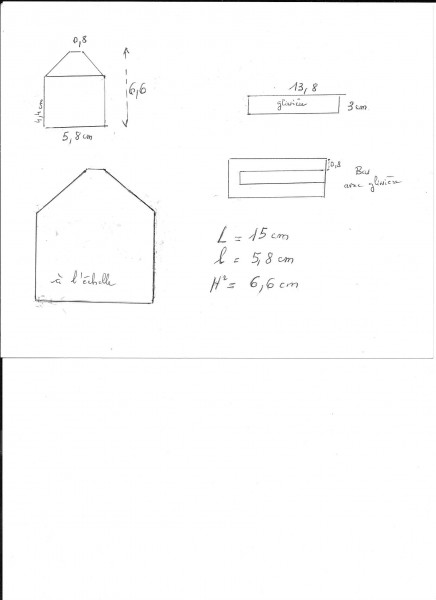 0,8
6,6
5,8 cm
13,8
glissière
3 cm
0,8
Bas
avec glissière
à l'échelle
L = 15 cm
l = 5,8 cm
H² = 6,6 cm